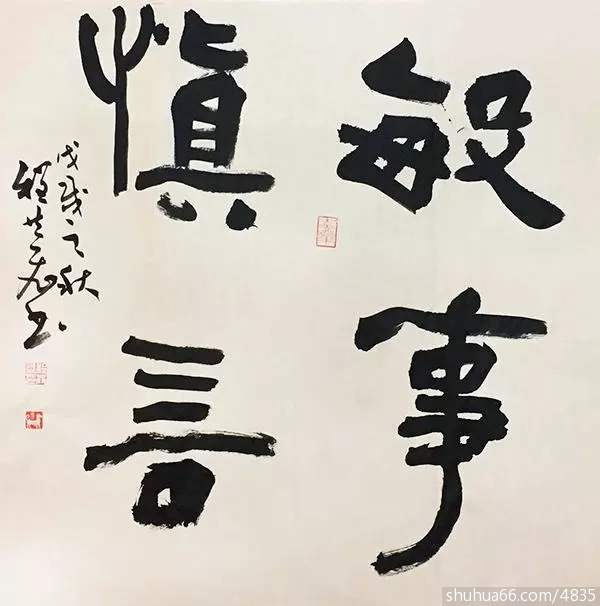 敏事
慎言
戊戌之秋
程
shuhua66.com/4835